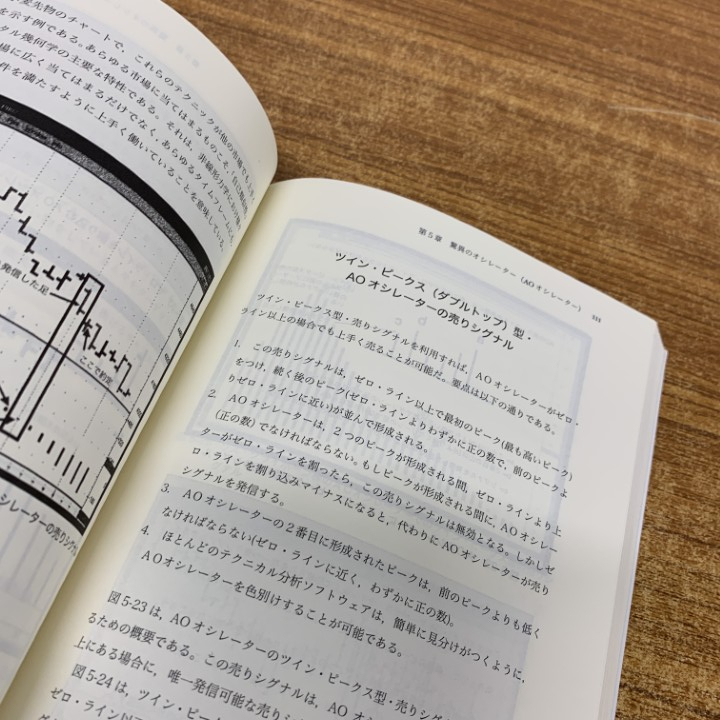 変先物のチャートで，これらのテクニックが他の市場でも上手
を示す例である。あらゆる市場に当てはまるものこそ，「自己
タル幾何学の主要な特性である。それは，非線形力学における
場に広く当てはまるだけでなく，あらゆるタイムフレームにも
件を満たすように上手く働いていることを意味している。
発信した足
ここで約定
シレーターの売りシグナル
第5章 驚異のオシレーター（AOオシレーター） 111
ツイン・ピークス（ダブルトップ）型・
AOオシレーターの売りシグナル
ツイン・ピークス型・売りシグナルを利用すれば，AOオシレーターがゼロ・
ライン以上の場合でも上手く売ることが可能だ。要点は以下の通りである。
1. この売りシグナルは，ゼロ・ライン以上で最初のピーク(最も高いピーク)
をつけ，続く後のピーク(ゼロ・ラインよりわずかに正の数で，前のピークよ
りゼロ・ラインに近い)が並んで形成される。
2. AOオシレーターは，2つのピークが形成される間，ゼロ・ラインより上
(正の数)でなければならない。もしピークが形成される間に，AOオシレー
ターがゼロ・ラインを割ったら，この売りシグナルは無効となる。しかしゼ
ロ・ラインを割り込みマイナスになると，代わりにAOオシレーターが売り
シグナルを発信する。
3. AOオシレーターの2番目に形成されたピークは，前のピークよりも低く
なければならない(ゼロ・ラインに近く，わずかに正の数)。
4. ほとんどのテクニカル分析ソフトウェアは，簡単に見分けがつくように，
AOオシレーターを色別けすることが可能である。
図5-23は，AOオシレーターのツイン・ピークス型・売りシグ
るための概要である。この売りシグナルは，AO
上にある場合に，唯一発信可能な売りシグ
図5-24は，ツイン・ピー
ゼロ・ライン以